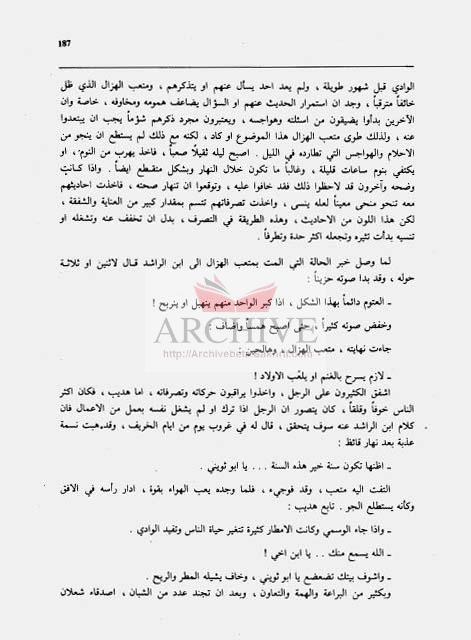 187
الوادي قبل شهور طويلة ، ولم يعد احد يسأل عنهم او يتذكرهم ، ومتعب الهزال الذي ظل
خائفاً مترقباً ، وجد ان استمرار الحديث عنهم او السؤال يضاعف همومه ومخاوفه ، خاصة وان
الآخرين بدأوا يضيقون من اسئلته وهواجسه ، ويعتبرون مجرد ذكرهم شؤماً يجب ان يبتعدوا
عنه ، ولذلك طوى متعب الهزال هذا الموضوع او كاد ، لكنه مع ذلك لم يستطع ان ينجو من
الاحلام والهواجس التي تطارده في الليل . اصبح ليله ثقيلاً صعباً ، فاخذ يهرب من النوم ، او
يكتفي بنوم ساعات قليلة ، وغالباً ما تكون خلال النهار وبشكل متقطع ايضاً . واذا كانت
وضحه وآخرون قد لاحظوا ذلك فقد خافوا عليه ، وتوقعوا ان تنهار صحته ، فاخذت احاديثهم
معه تنحو منحى معيناً لعله ينسى ، واخذت تصرفاتهم تتسم بمقدار كبير من العناية والشفقة ،
لكن هذا اللون من الاحاديث ، وهذه الطريقة في التصرف ، بدل ان تخفف عنه وتشغله او
تنسيه بدأت تثيره وتجعله اكثر حدة وتطرفاً .
لما وصل خبر الحالة التي المت بمتعب الهزال الى ابن الراشد قال لاثنين او ثلاثة
حوله ، وقد بدا صوته حزيناً :
ـ العتوم دائماً بهذا الشكل ، اذا كبر الواحد منهم ينهبل او يتربح !
وخفض صوته كثيراً ، حتى اصبح همساً واضاف :
جاءت نهايته ، متعب الهزال ، وهالحين :
ـ لازم يسرح بالغنم او يلعّب الاولاد !
ARCHIVE
http://Archivebeta.Sakhrit.com
اشفق الكثيرون على الرجل ، واخذوا يراقبون حركاته وتصرفاته ، اما هديب ، فكان اكثر
الناس خوفاً وقلقاً ، كان يتصور ان الرجل اذا ترك او لم يشغل نفسه بعمل من الاعمال فان
كلام ابن الراشد عنه سوف يتحقق ، قال له في غروب يوم من ايام الخريف ، وقد هبت نسمة
عذبة بعد نهار قائظ :
ـ اظنها تكون سنة خير هذه السنة . . . يا ابو ثويني .
التفت اليه متعب ، وقد فوجىء ، فلما وجده يعب الهواء بقوة ، ادار رأسه في الافق
وكأنه يستطلع الجو . تابع هديب :
ـ واذا جاء الوسمي وكانت الامطار كثيرة تتغير حياة الناس وتفيد الوادي .
ـ الله يسمع منك . . يا ابن اخي !
ـ واشوف بيتك تضعضع يا ابو ثويني ، وخاف يشيله المطر والريح .
وبكثير من البراعة والهمة والتعاون ، وبعد ان تجند عدد من الشبان ، اصدقاء شعلان